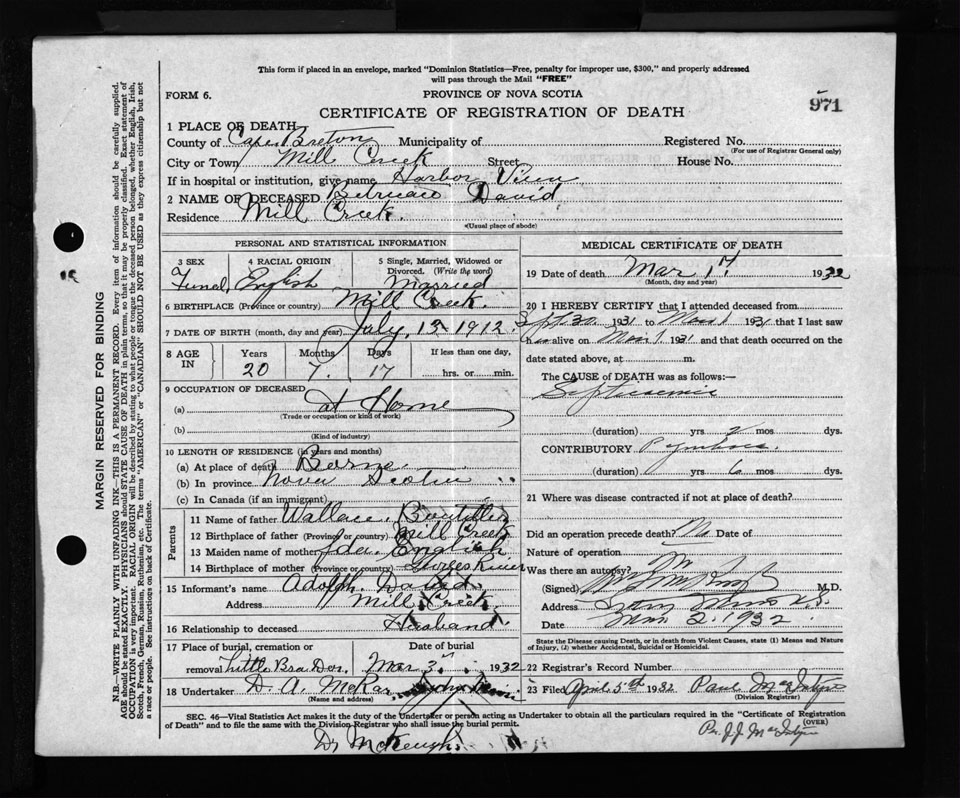 This form if placed in an envelope, marked "Dominion Statistics—Free, penalty for improper use, $300," and properly addressed
will pass through the Mail "FREE"
FORM 6. PROVINCE OF NOVA SCOTIA
971
CERTIFICATE OF REGISTRATION OF DEATH
1 PLACE OF DEATH
County of Cape Breton Municipality of Registered No.
(For use of Registrar General only)
City or Town Mill Creek Street House No.
If in hospital or institution, give name Harbor View
2 NAME OF DECEASED David
Residence Mill Creek.
(Usual place of abode)
PERSONAL AND STATISTICAL INFORMATION
3 SEX 4 RACIAL ORIGIN 5 Single, Married, Widowed or
Divorced. (Write the word)
English Married
6 BIRTHPLACE (Province or country) Mill Creek.
7 DATE OF BIRTH (month, day and year) July, 13 1912.
8 AGE IN Years Months Days If less than one day,
20 7. 17 hrs. or min.
9 OCCUPATION OF DECEASED
(a) at Home
(Trade or occupation or kind of work)
(b)
(Kind of industry)
10 LENGTH OF RESIDENCE (in years and months)
(a) At place of death
(b) In province Nova Scotia
(c) In Canada (if an immigrant)
Parents
11 Name of father Wallace Boutilier
12 Birthplace of father (Province or country) Mill Creek
13 Maiden name of mother Ida English
14 Birthplace of mother (Province or country) Georges River
15 Informant's name Adolph David
Address Mill Creek
16 Relationship to deceased Husband
17 Place of burial, cremation or Date of burial
removal Little Bra Dor. Mar 3 1932
18 Undertaker D. A. McRae
(Name and address)
MEDICAL CERTIFICATE OF DEATH
19 Date of death Mar 1 1932
(Month, day and year)
20 I HEREBY CERTIFY that I attended deceased from
Sept 30 1931 to Mar 1 1931 that I last saw
her alive on Mar 1 1931 and that death occurred on the
date stated above, at m.
The CAUSE of DEATH was as follows:—
Septicaemia
(duration) yrs 2 mos dys.
CONTRIBUTORY
(duration) yrs 6 mos dys.
21 Where was disease contracted if not at place of death?
Did an operation precede death? No Date of
Nature of operation
Was there an autopsy? No
(Signed) M.D.
Address
Date Mar 2. 1932
State the Disease causing Death, or in death from Violent Causes, state (1) Means and Nature
of Injury, (2) whether Accidental, Suicidal or Homicidal.
22 Registrar's Record Number
23 Filed April 5th 1932 Paul MacIntyre
(Division Registrar)
SEC. 46—Vital Statistics Act makes it the duty of the Undertaker or person acting as Undertaker to obtain all the particulars required in the "Certificate of Registration
of Death" and to file the same with the Division Registrar who shall issue the burial permit. (OVER)
Dr McKeugh Per J.J. MacIntyre
MARGIN RESERVED FOR BINDING
N.B.—WRITE PLAINLY WITH UNFADING INK—THIS IS A PERMANENT RECORD. Every item of information should be carefully supplied.
AGE should be stated EXACTLY. PHYSICIANS should STATE CAUSE OF DEATH in plain terms, so that it may be properly classified. Exact statement of
OCCUPATION is very important. RACIAL ORIGIN will be described by stating to what people or tongue the deceased person belonged, whether English, Irish,
Scotch, French, German, Russian, Ruthenian, etc. The terms "AMERICAN" or "CANADIAN" SHOULD NOT BE USED as they express citizenship but not
a race or people. See instructions on back of Certificate.